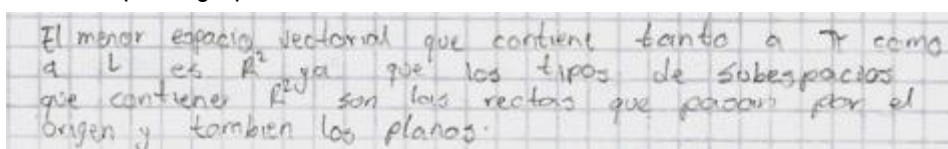 El menor espacio vectorial que contiene tanto a π como
a L es R² ya que los tipos de subespacios
que contiene R² son las rectas que pasan por el
origen y tambien los planos.